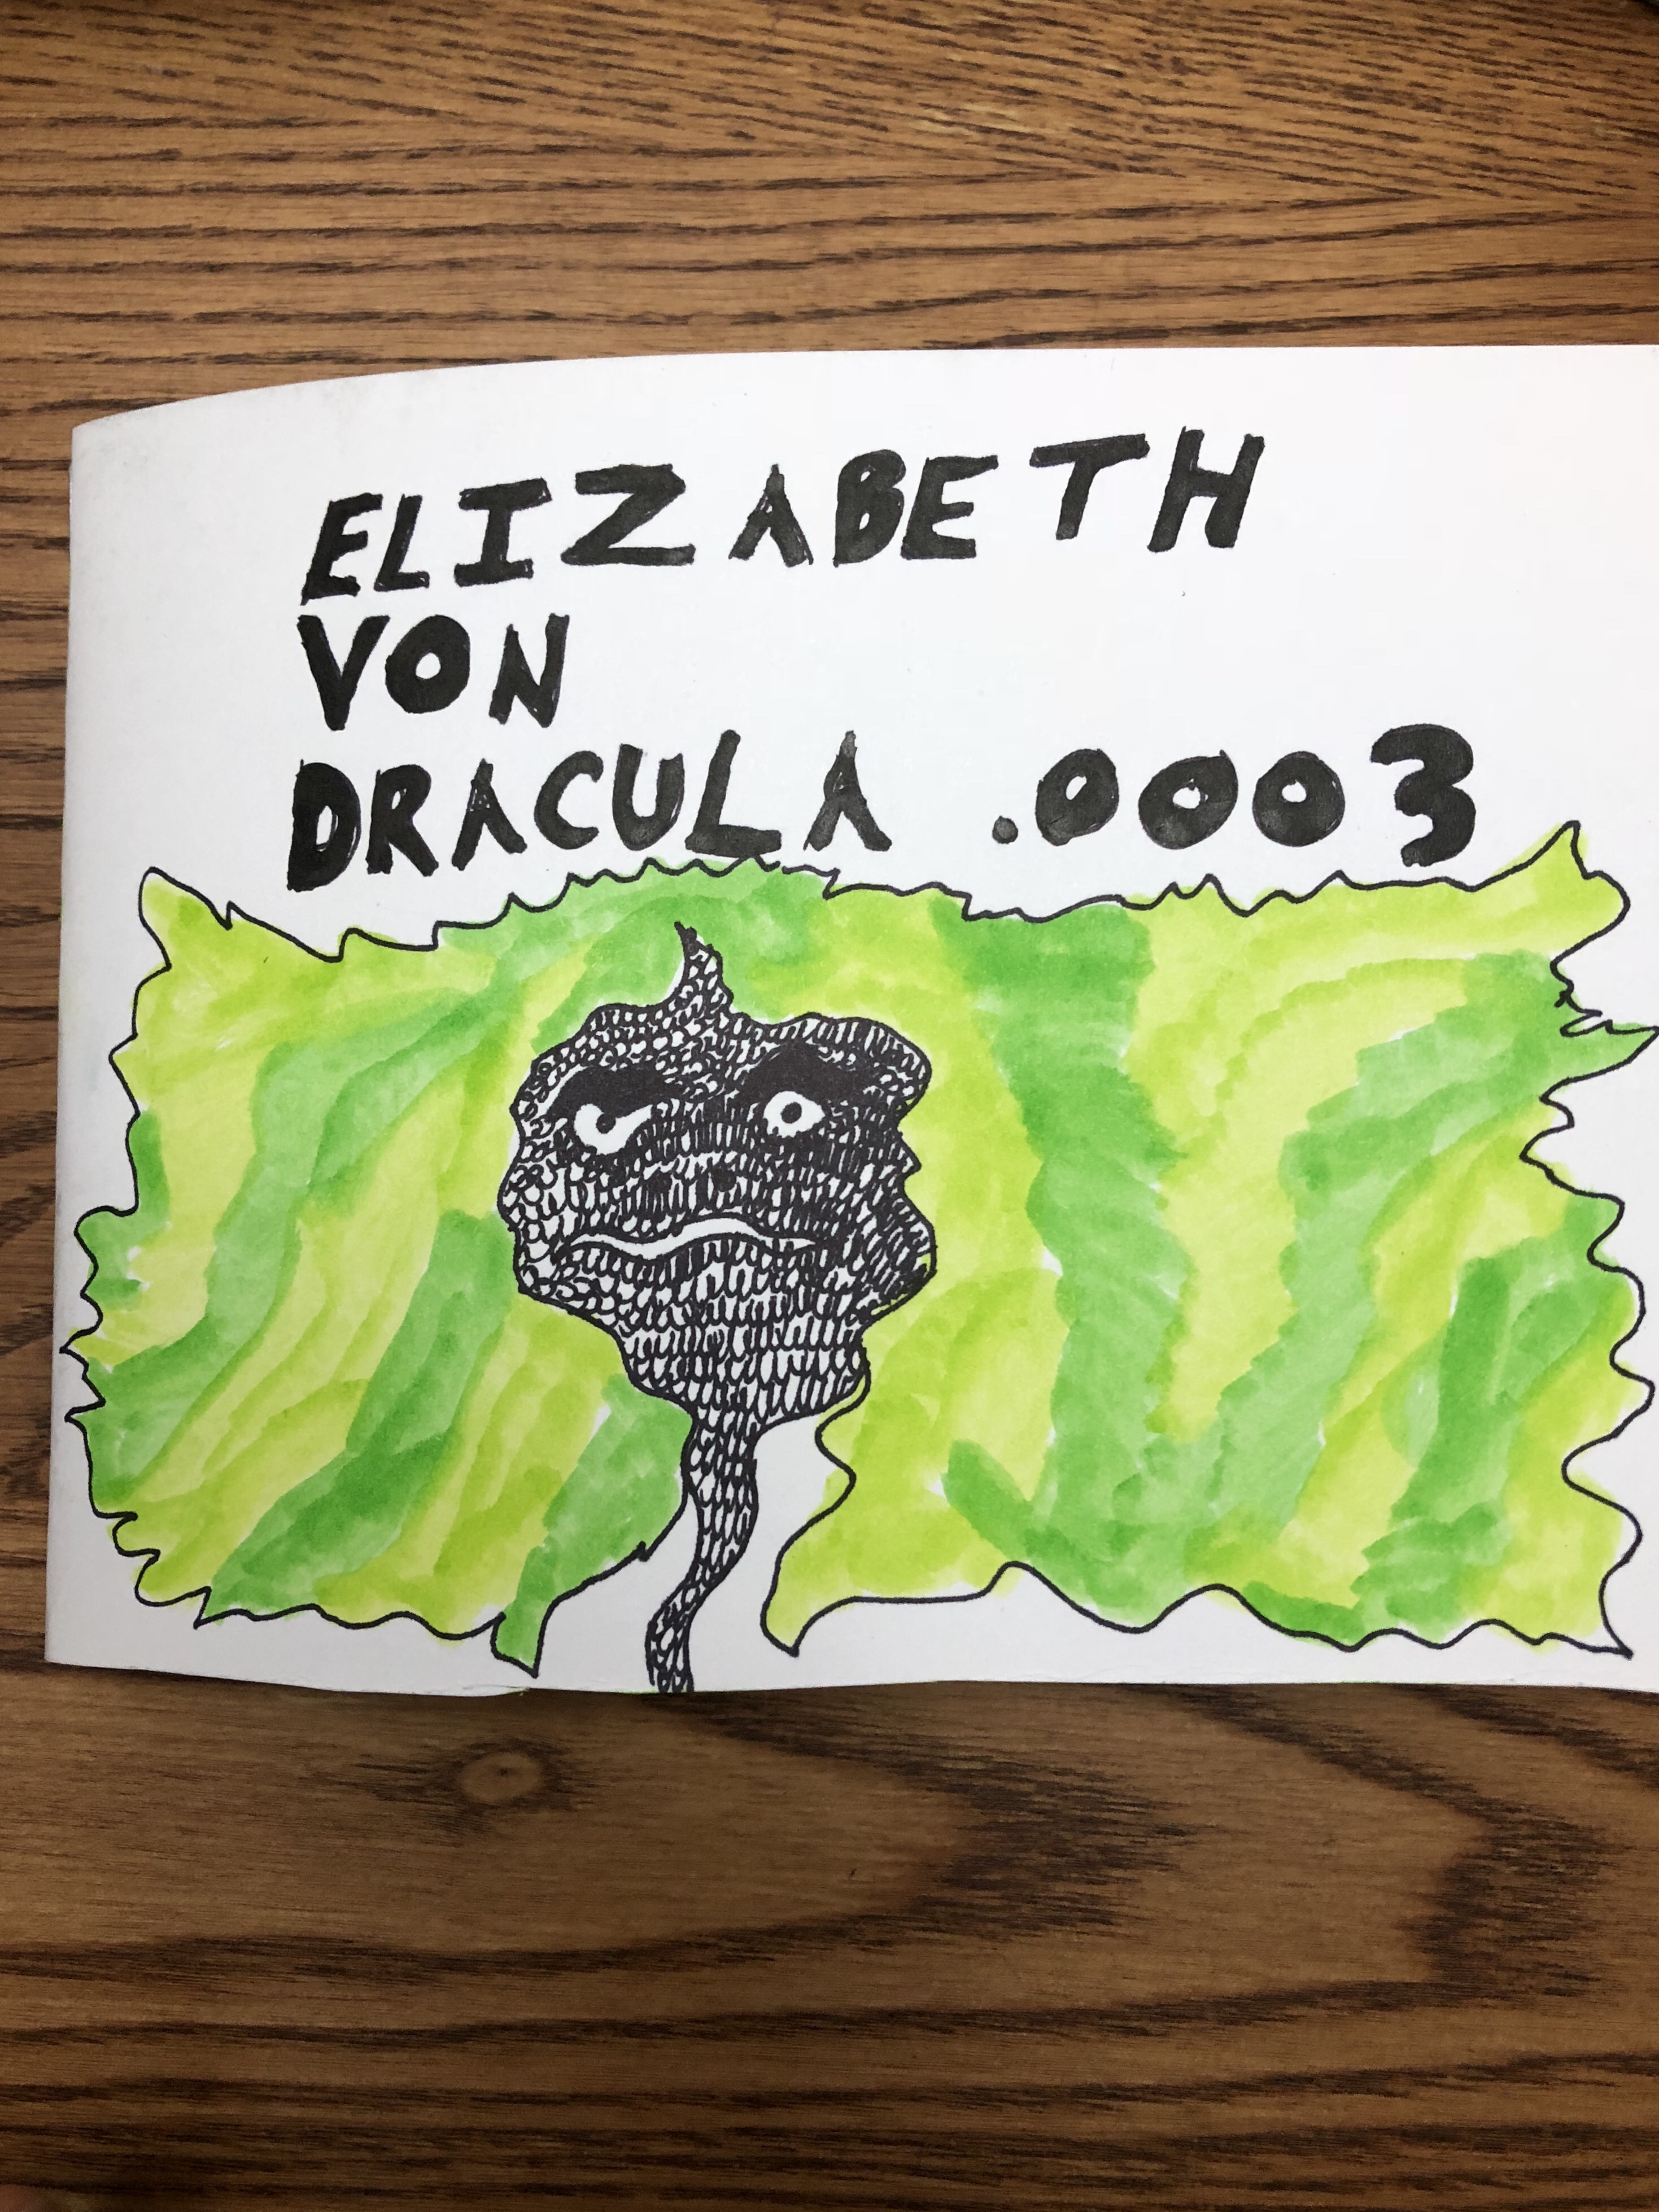 ELIZABETH
VON
DRACULA .0003